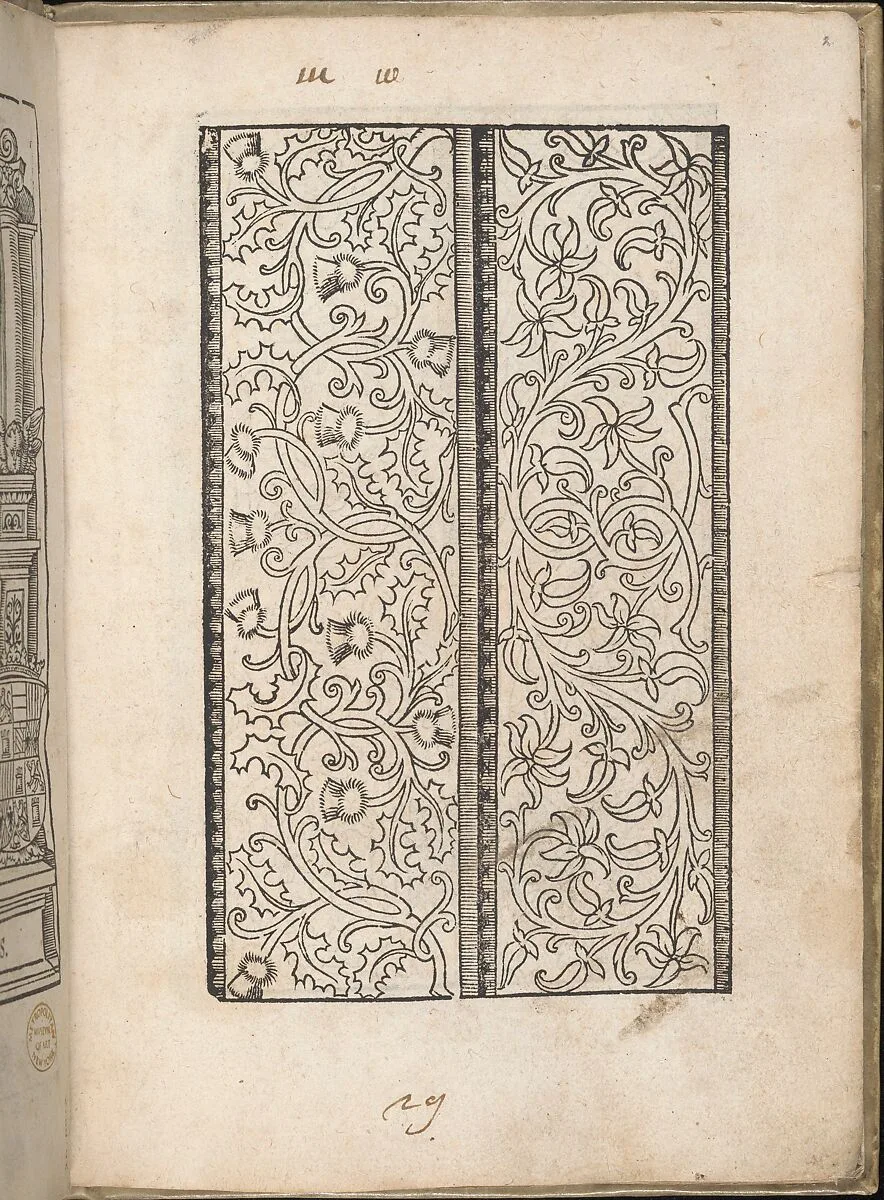 2
m w
S.
METROPOLITAN MUSEUM OF ART NEW YORK
29